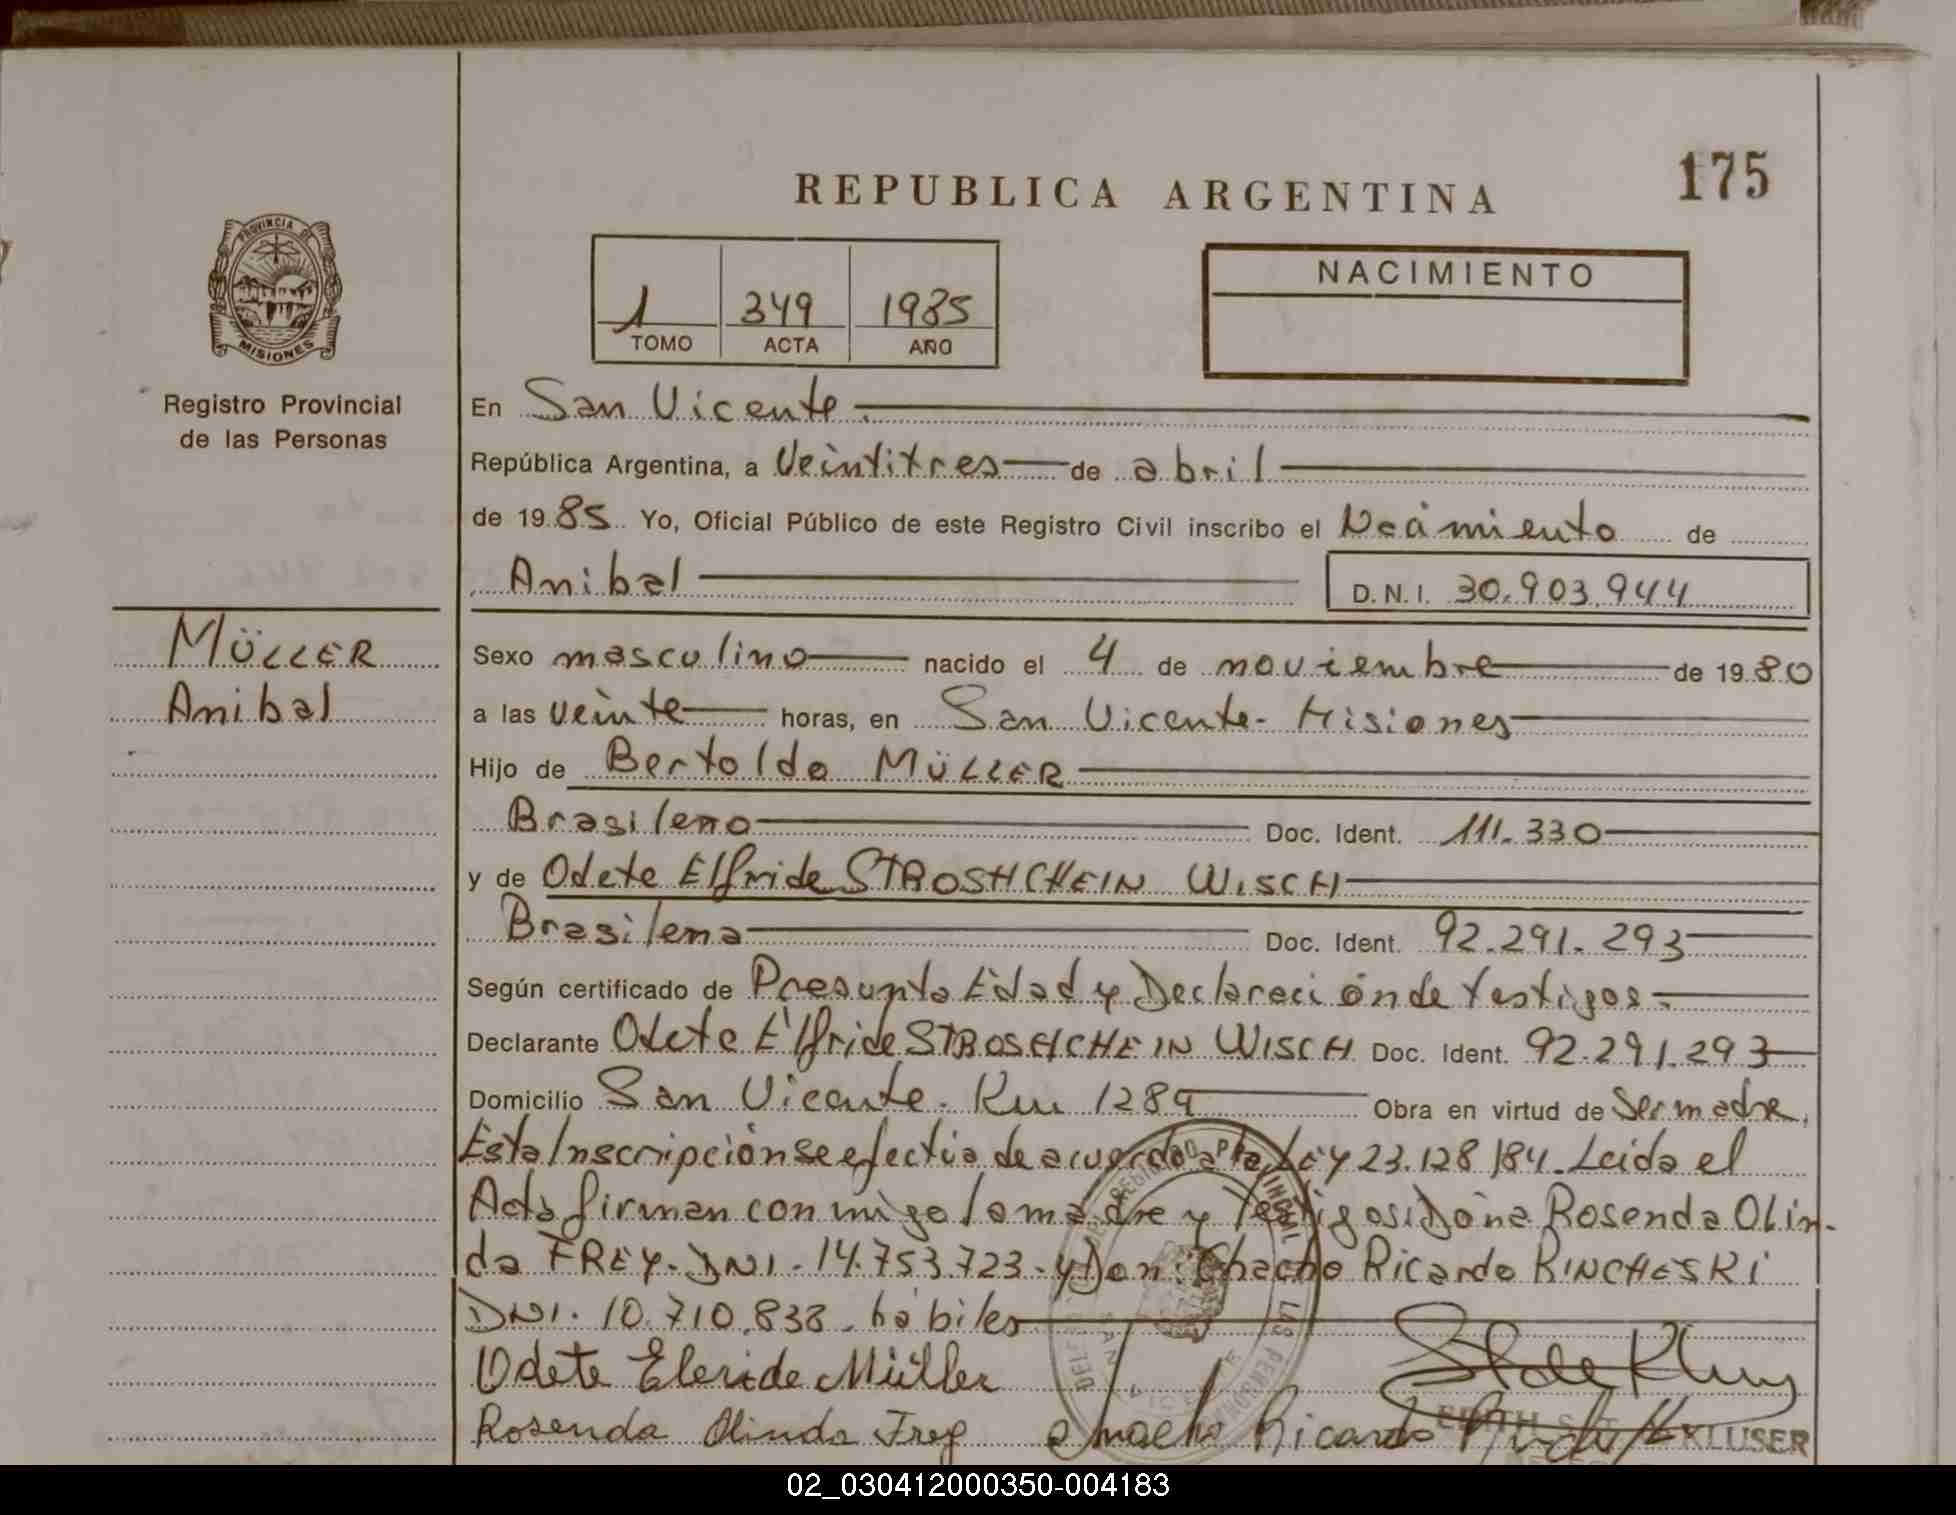 REPUBLICA ARGENTINA
175
PROVINCIA DE
MISIONES
Registro Provincial
de las Personas
1 349 1985
TOMO ACTA AÑO
NACIMIENTO
En San Vicente.
República Argentina, a Veintitres de abril
de 1985 Yo, Oficial Público de este Registro Civil inscribo el Nacimiento de
Anibal D.N.I. 30.903.944
MÜLLER
Anibal
Sexo masculino nacido el 4 de noviembre de 1980
a las veinte horas, en San Vicente - Misiones
Hijo de Bertoldo MÜLLER
Brasileno Doc. Ident. 111.330
y de Odete Elfride STROSHCHEIN WISCH
Brasilena Doc. Ident. 92.291.293
Según certificado de Presunta Edad y Declaración de testigos.-
Declarante Odete Elfride STROSHCHEIN WISCH Doc. Ident. 92.291.293
Domicilio San Vicente - Km 1289 Obra en virtud de Ser madre,
Esta Inscripción se efectúa de acuerdo a la Ley 23.128/84. Leida el
Acta firman conmigo la madre y testigos: Doña Rosenda Olin-
da FREY - DNI - 14.753.723 - y Don: Chacho Ricardo KINCHESKI
DNI. 10.710.838 - hábiles
Odete Eleride Müller
Rosenda Olinda Frey Ricardo
KLUSER
02_030412000350-004183